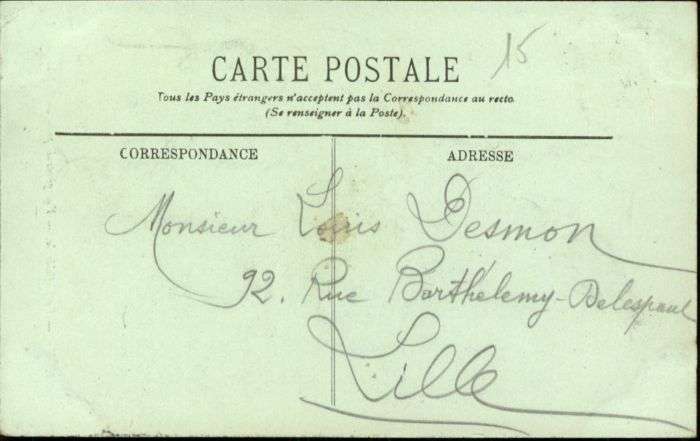 15
CARTE POSTALE
Tous les Pays étrangers n'acceptent pas la Correspondance au recto.
(Se renseigner à la Poste).
CORRESPONDANCE
ADRESSE
Monsieur Louis Desmon
92. Rue Barthélemy-Delespaul
Lille